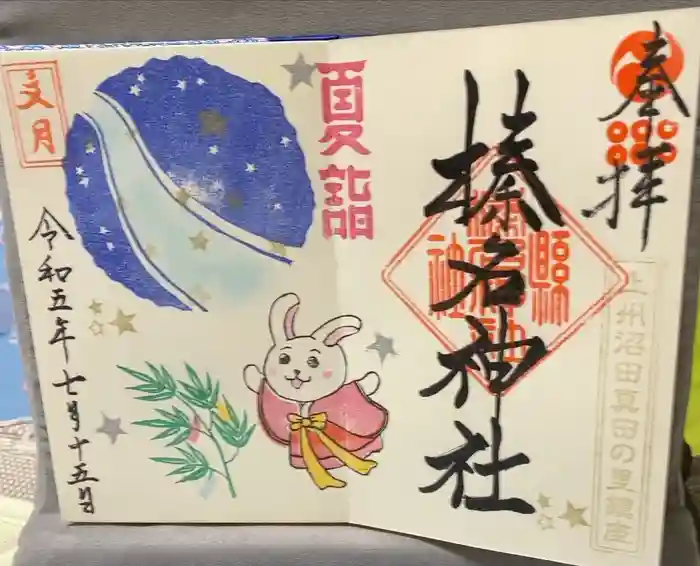 奉拝
榛名神社
上州沼田真田の里鎮座
夏詣
文月
令和五年七月十五日